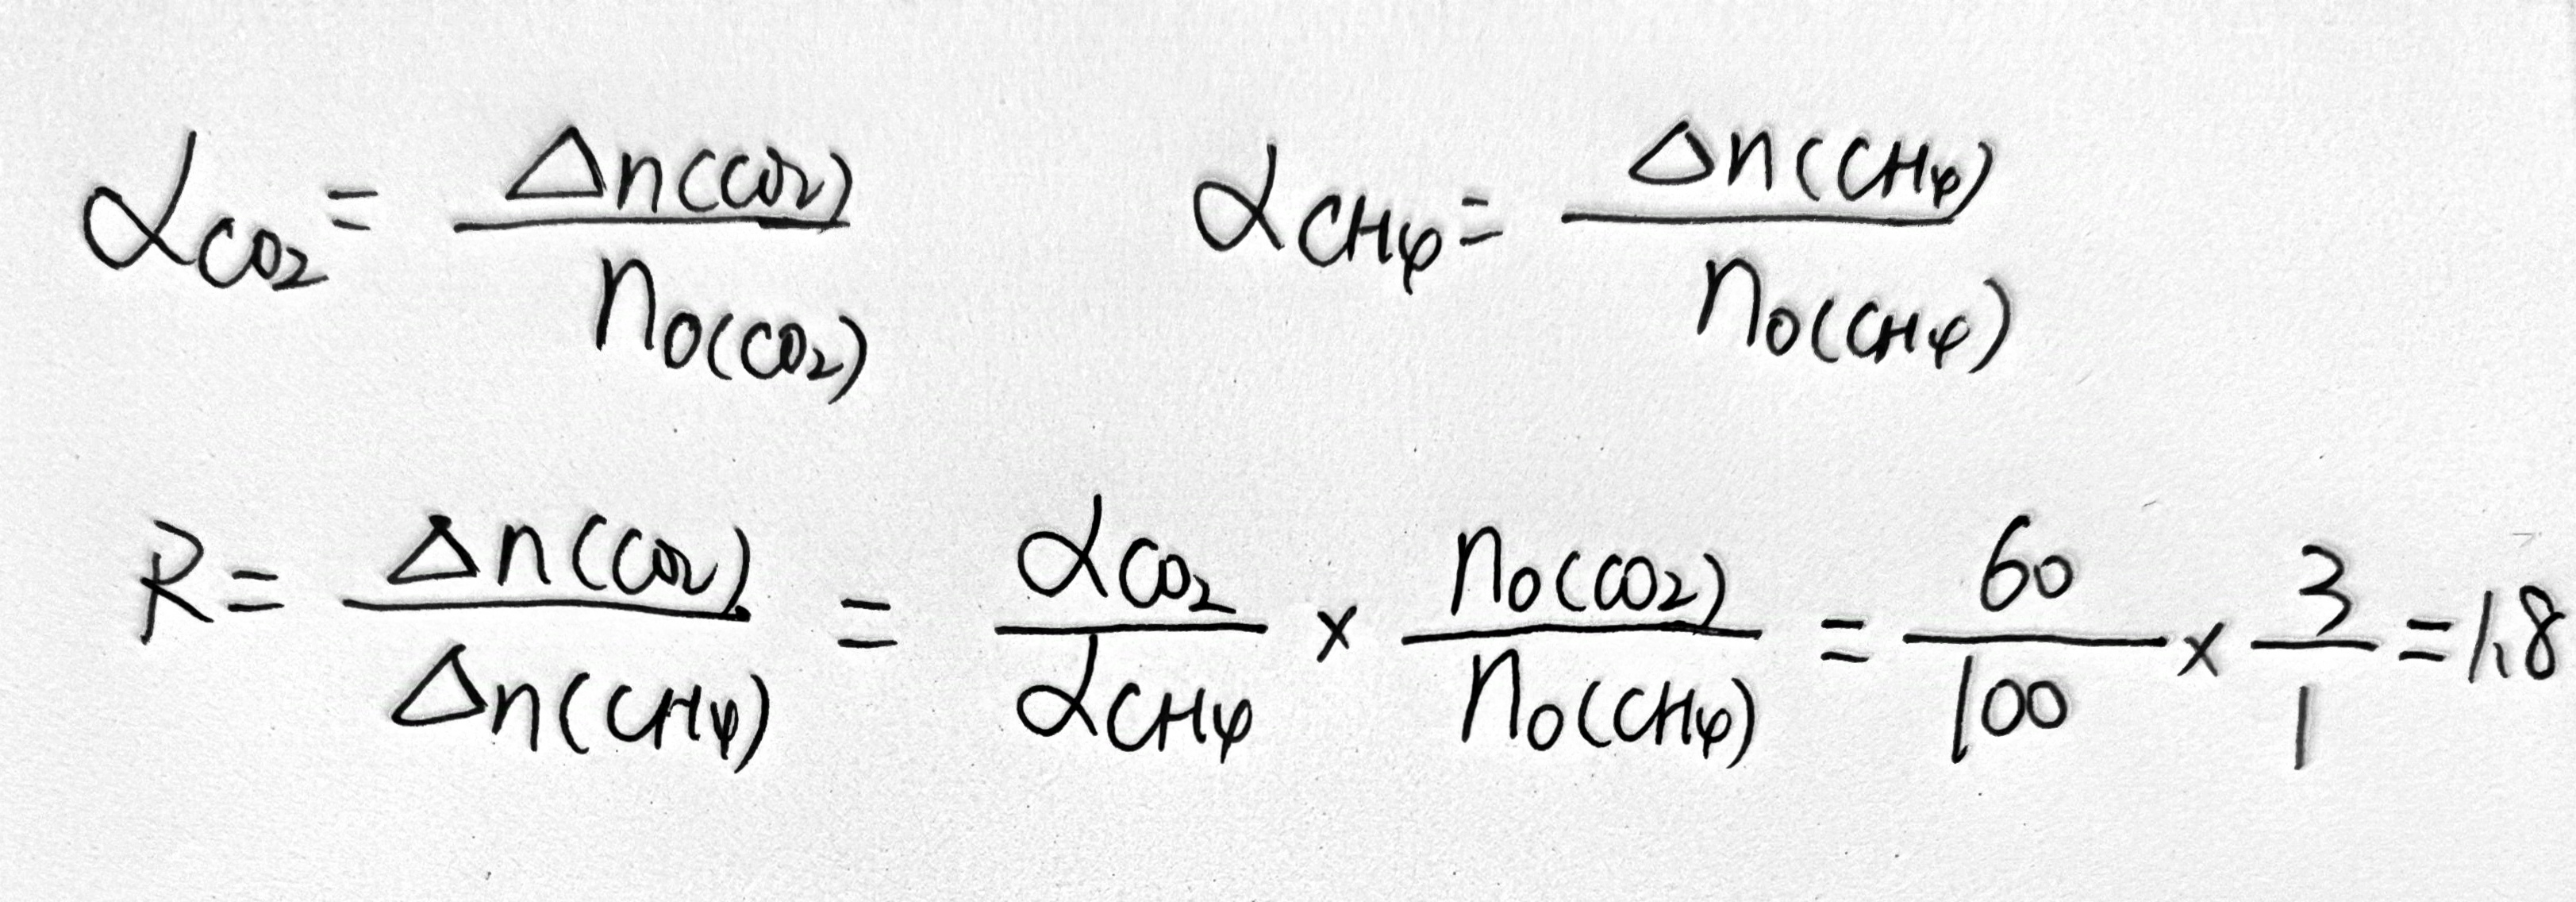 α_CO₂ = Δn(CO₂) / n₀(CO₂)    α_CH₄ = Δn(CH₄) / n₀(CH₄)
R = Δn(CO₂) / Δn(CH₄) = α_CO₂ / α_CH₄ × n₀(CO₂) / n₀(CH₄) = 60 / 100 × 3 / 1 = 1.8